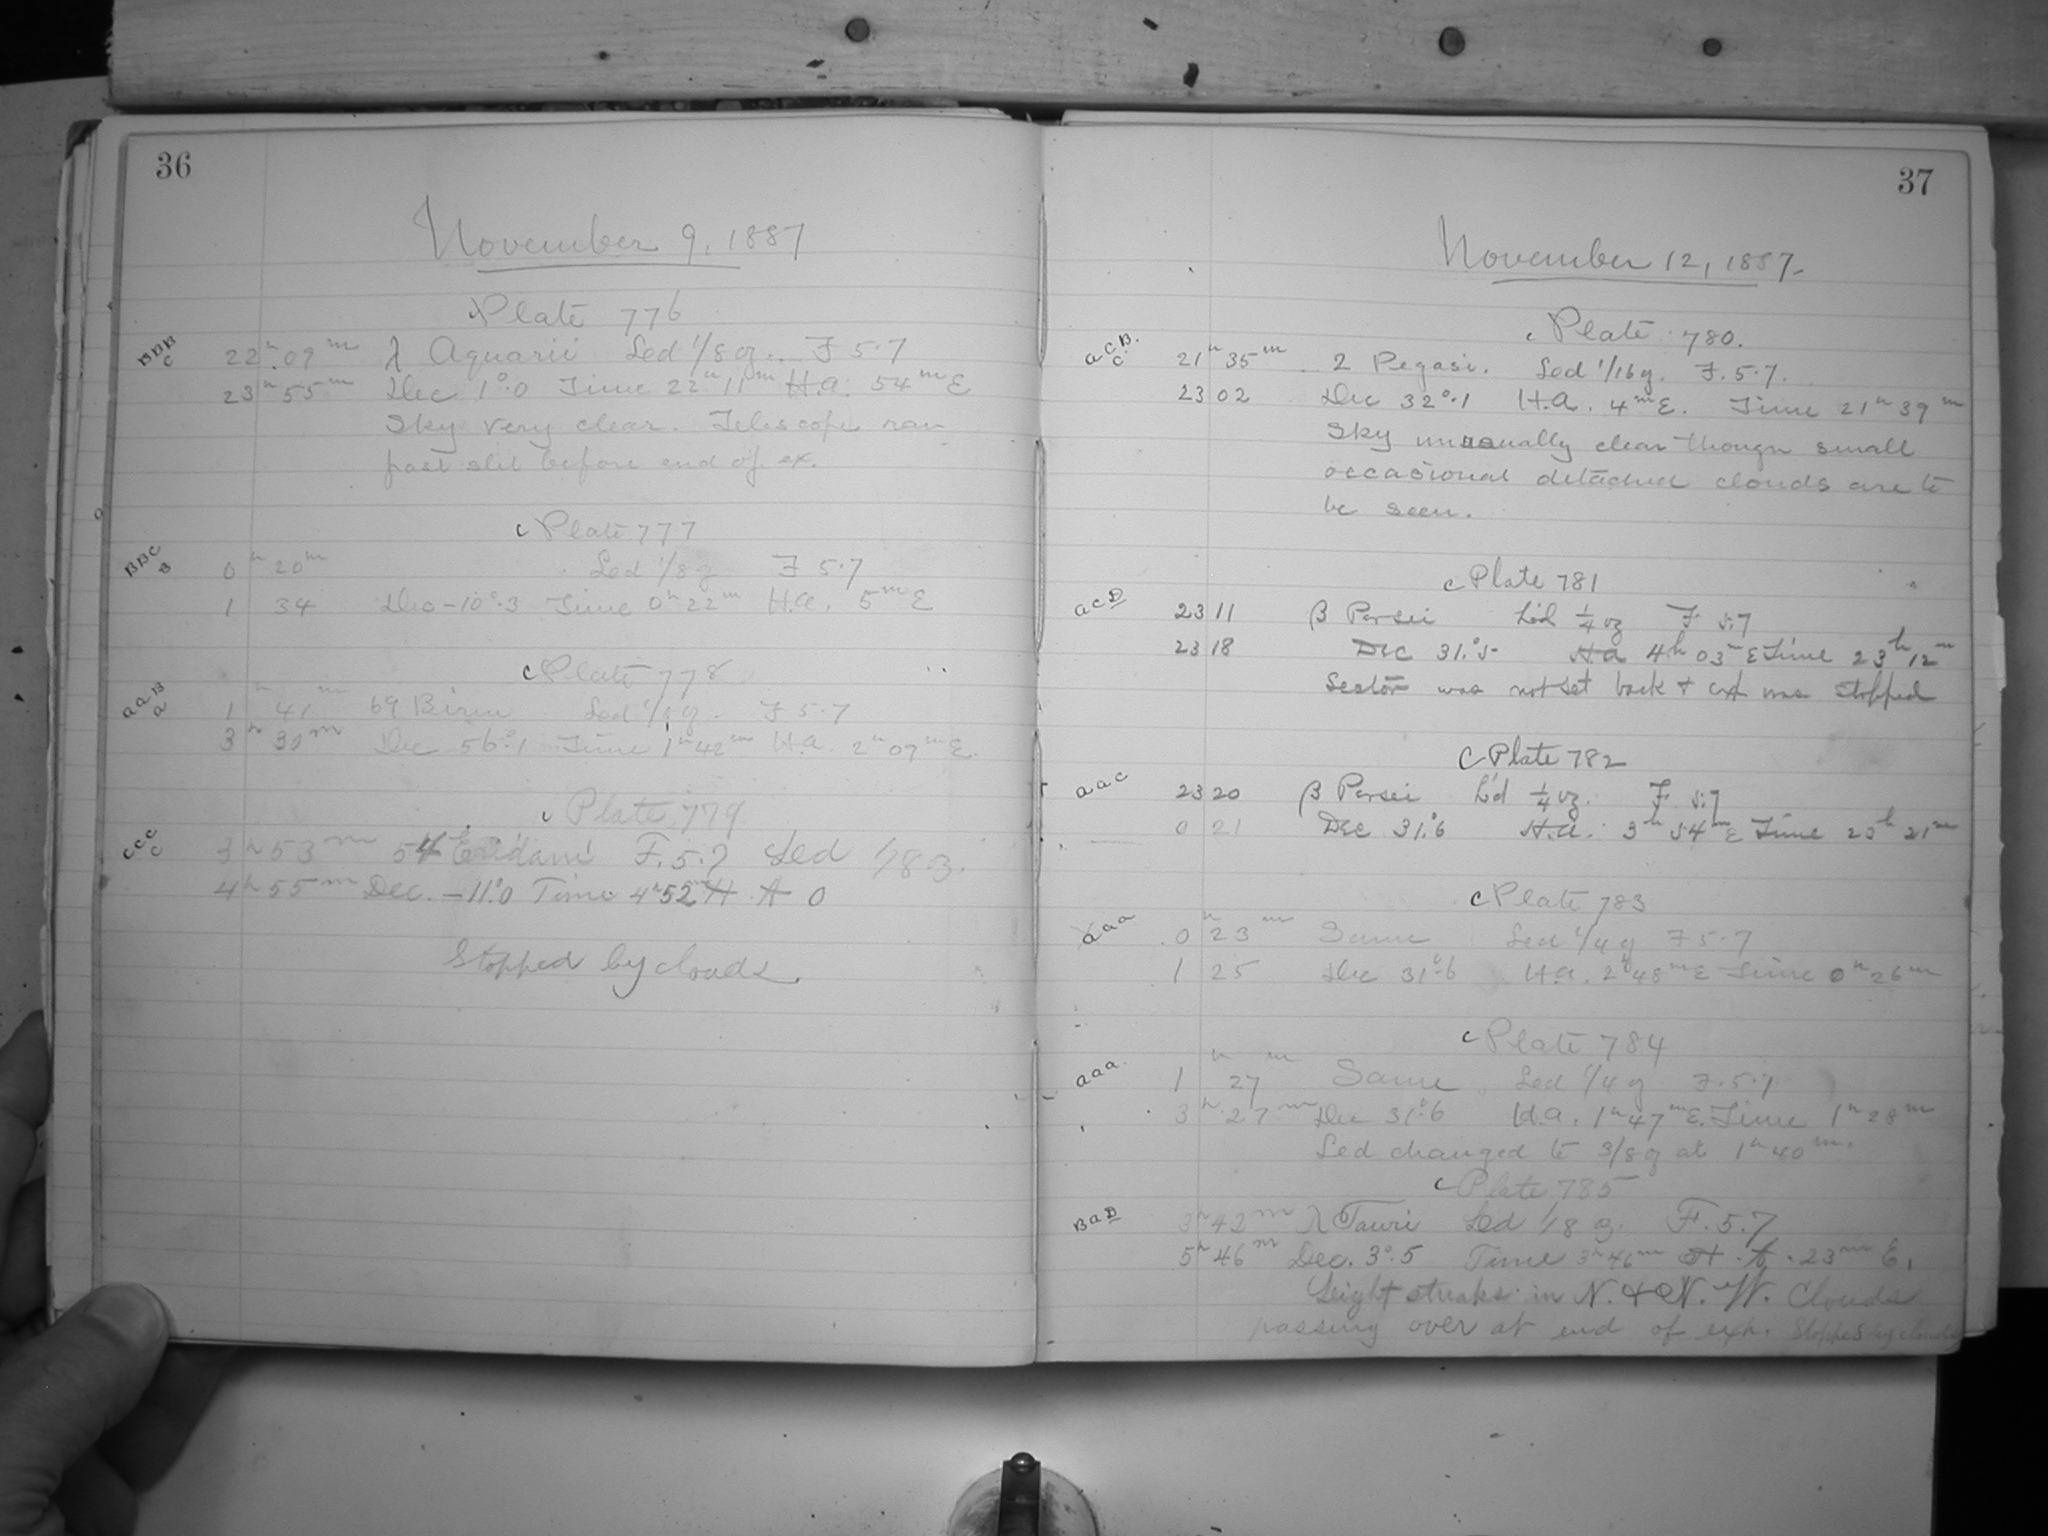 36
November 9, 1887
c Plate 776
BBB
C
22ʰ 09ᵐ λ Aquarii Led 1/8 oz. F 5.7
23ʰ 55ᵐ Dec 1°.0 Time 22ʰ 11ᵐ H.a. 54ᵐ E
Sky very clear. Telescope ran
past slit before end of ex.
c Plate 777
BBC
B
0ʰ 20ᵐ Led 1/8 oz F 5.7
1 34 Dec -10°.3 Time 0ʰ 22ᵐ H.a. 5ᵐ E
c Plate 778
a a B
a
1ʰ 41ᵐ 69 Led F 5.7
3ʰ 30ᵐ Dec 56°.1 Time 1ʰ 42ᵐ H.a. 2ʰ 09ᵐ E.
c Plate 779
CCC
C
3ʰ 53ᵐ 54 Eridani F. 5.7 Led 1/8 oz.
4ʰ 55ᵐ Dec. -11°.0 Time 4ʰ 52ᵐ H.A 0
Stopped by clouds
37
November 12, 1887.
c Plate 780.
a C B.
C.
21ʰ 35ᵐ 2 Pegasi. Led 1/16 oz. F. 5.7.
23 02 Dec 32°.1 H.a. 4ᵐ E. Time 21ʰ 39ᵐ
Sky unusually clear though small
occasional detached clouds are to
be seen.
c Plate 781
a c D
23 11 β Persei Led 1/4 oz F 5.7
23 18 Dec 31.°5 H.a 4ʰ 03ᵐ E Time 23ʰ 12ᵐ
Sector was not set back & was stopped
C Plate 782
a a c
23 20 β Persei L'd 1/4 oz. F. 5.7
0 21 Dec 31.°6 H.a. 3ʰ 54ᵐ E Time 23ʰ 21ᵐ
c Plate 783
a a a
0ʰ 23ᵐ Same Led 1/4 oz F 5.7
1 25 Dec 31°.6 H.a. 2ʰ 48ᵐ E Time 0ʰ 26ᵐ
c Plate 784
a a a.
1ʰ 27ᵐ Same Led 1/4 oz F. 5.7
3ʰ 27ᵐ Dec 31°.6 H.a. 1ʰ 47ᵐ E. Time 1ʰ 28ᵐ
Led changed to 3/8 oz at 1ʰ 40ᵐ.
c Plate 785
B a D
3ʰ 42ᵐ λ Tauri Led 1/8 oz. F. 5.7
5ʰ 46ᵐ Dec. 3°.5 Time 3ʰ 46ᵐ H.A. 23ᵐ E.
Leight streaks in N. & N.W. Clouds
passing over at end of exp. Stopped by clouds